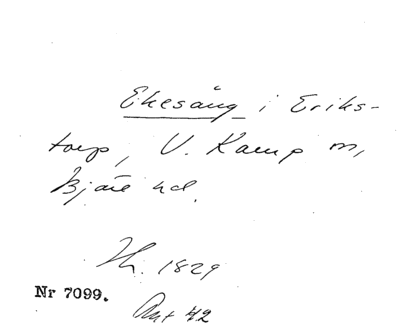 Ekesång i Eriks-
torp, V. Karup sn,
Bjäre hd.
Th. 1829
Nr 7099.
Ant 42